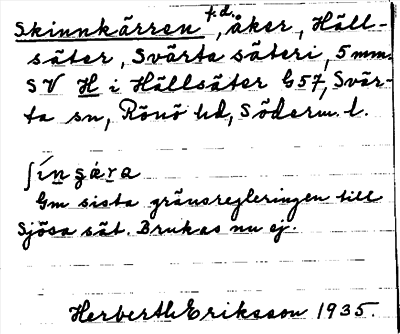 Skinnkärren f.d., åker, Häll-
säter, Svärta säteri, 5 mm.
SV H i Hällsäter G57, Svär-
ta sn, Rönö hd, Söderm. l.
Gm sista gränsregleringen till
Sjösa sät. Brukas nu ej.
Herberth Eriksson 1935.